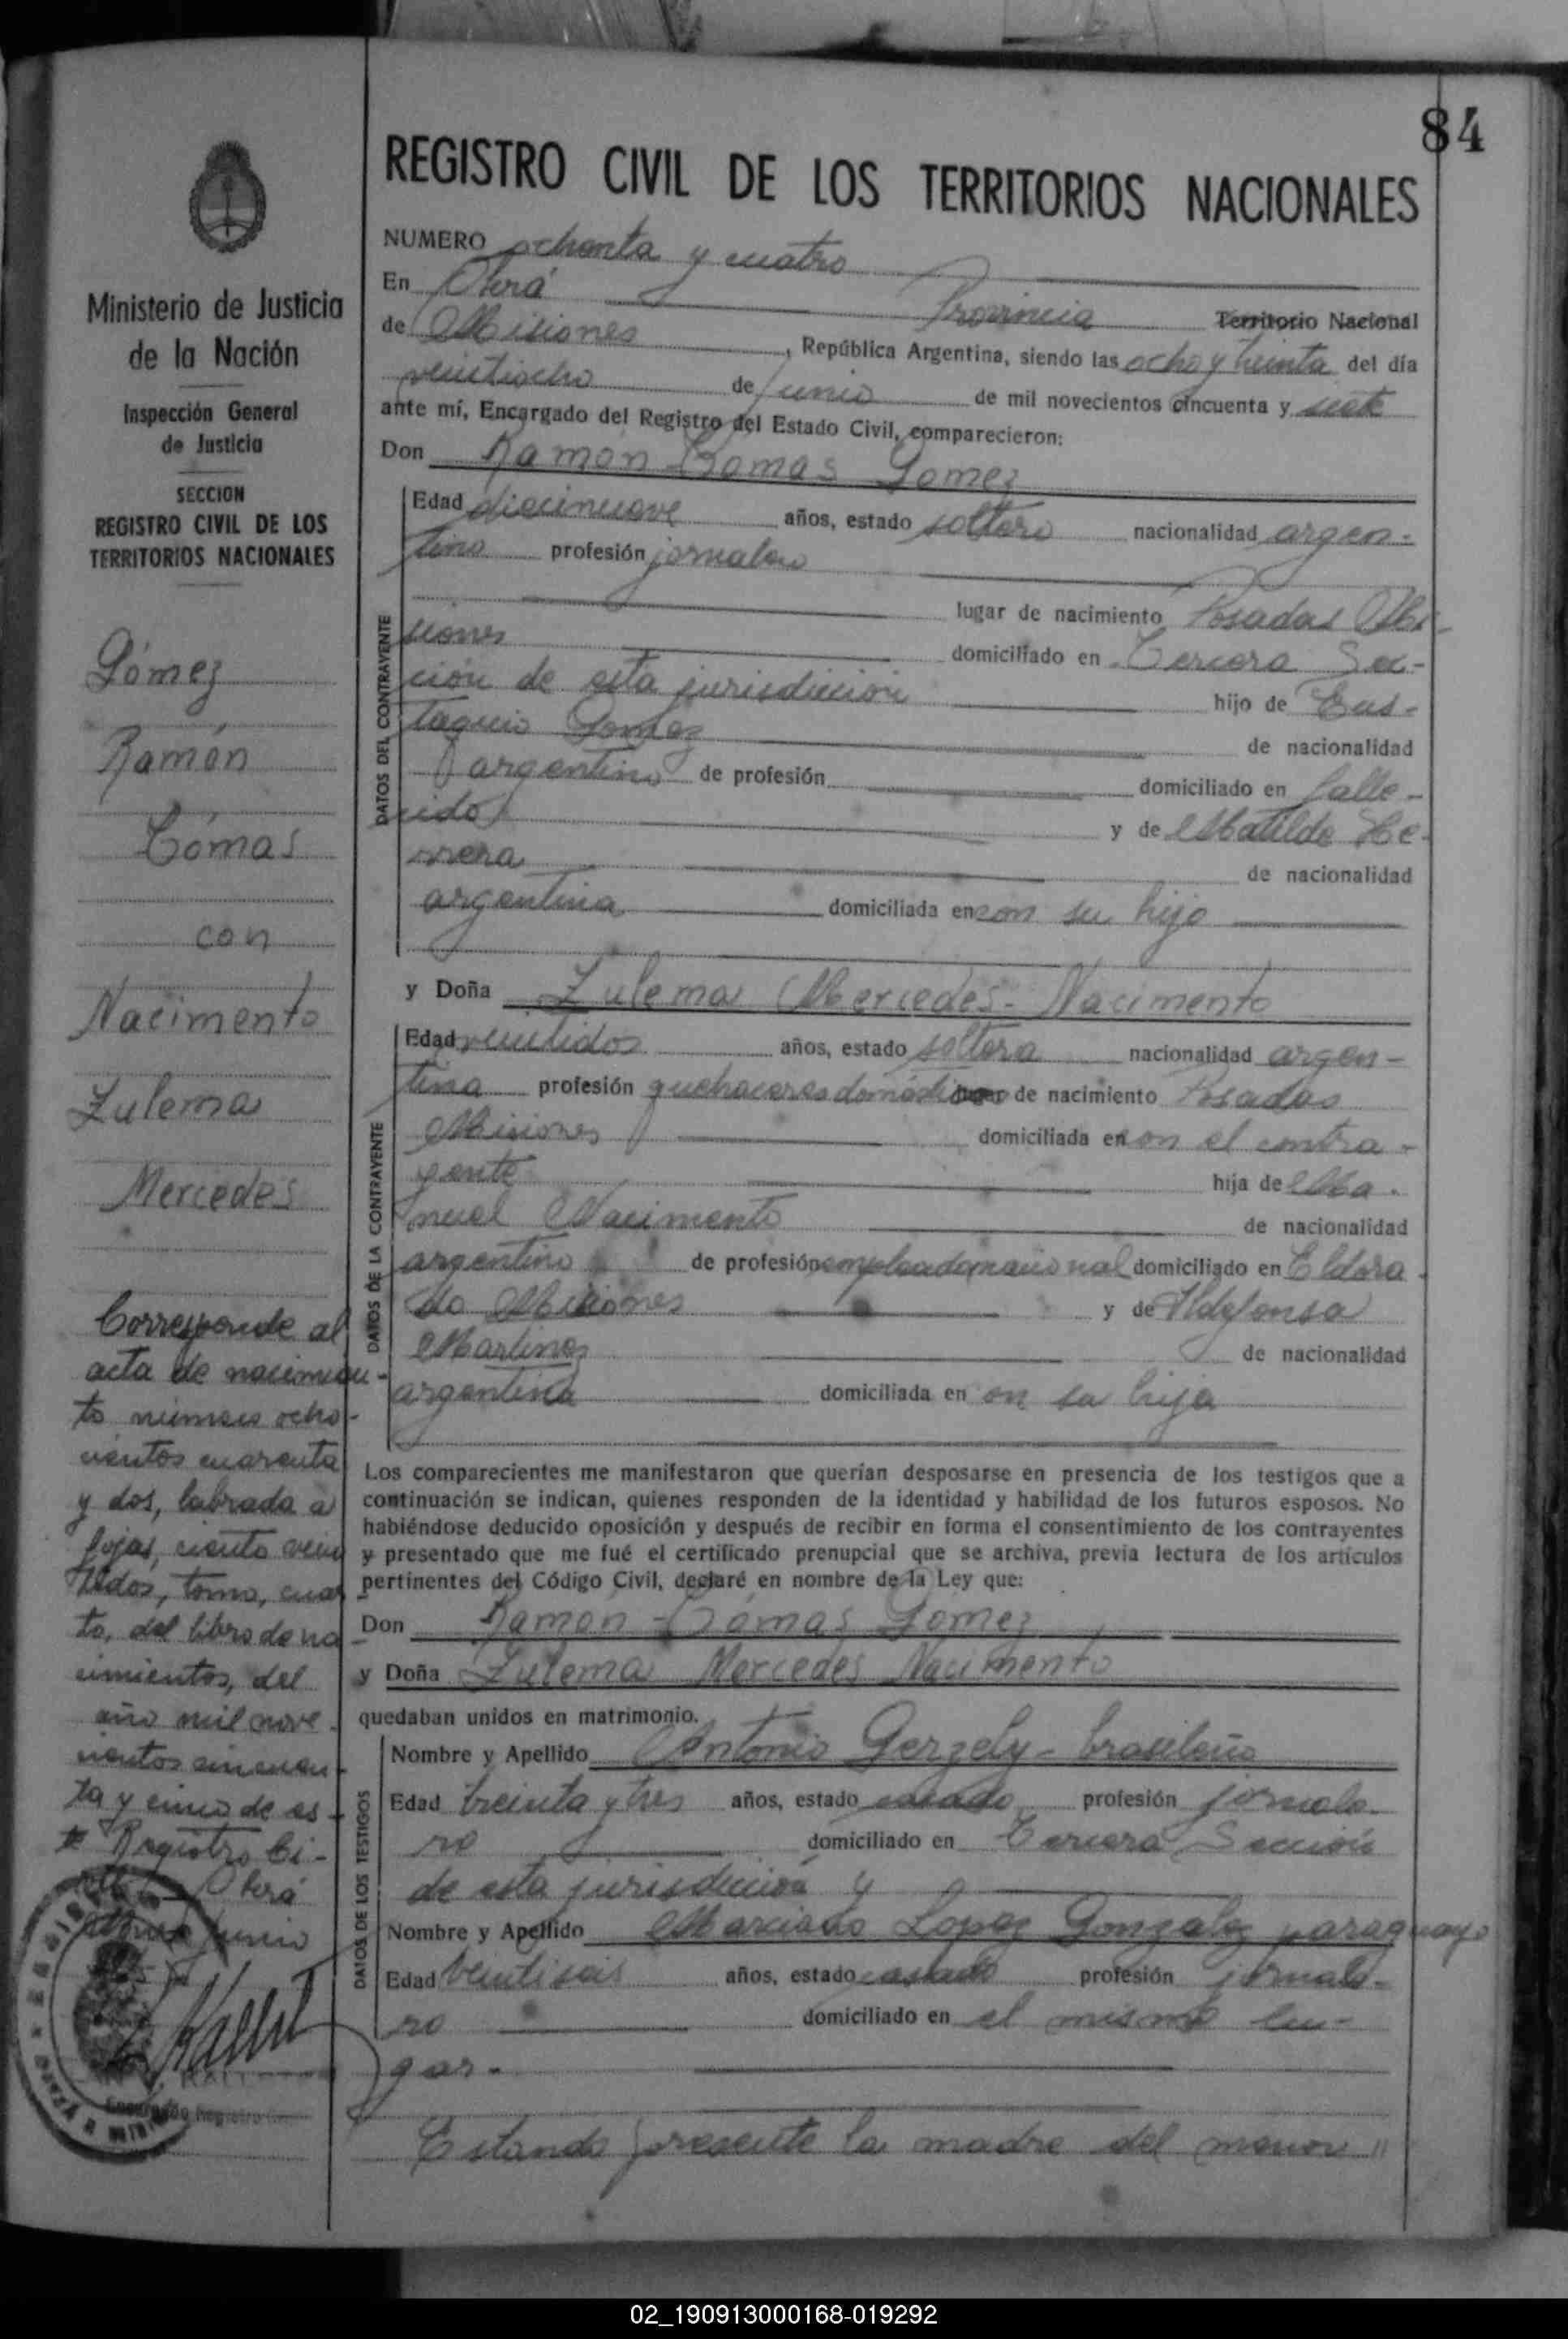 84
REGISTRO CIVIL DE LOS TERRITORIOS NACIONALES
NUMERO ochenta y cuatro
En Oberá
Provincia Territorio Nacional
de Misiones, República Argentina, siendo las ocho y treinta del día
veintiocho de junio de mil novecientos cincuenta y siete
ante mí, Encargado del Registro del Estado Civil, comparecieron:
Don Ramón Tomás Gomez
DATOS DEL CONTRAYENTE
Edad diecinueve años, estado soltero nacionalidad argen-
tino profesión jornalero
lugar de nacimiento Posadas Mi-
siones domiciliado en Tercera Sec-
ción de esta jurisdicción hijo de Eus-
taquio Gomez de nacionalidad
argentino de profesión domiciliado en falle-
cido y de Matilde He-
rrera de nacionalidad
argentina domiciliada en con su hijo
y Doña Zulema Mercedes Nacimento
DATOS DE LA CONTRAYENTE
Edad veintidos años, estado soltera nacionalidad argen-
tina profesión quehaceres domésticos lugar de nacimiento Posadas
Misiones domiciliada en con el contra-
yente hija de Ma-
nuel Nacimento de nacionalidad
argentino de profesión empleado nacional domiciliado en Eldora-
do Misiones y de Ildefonsa
Martinez de nacionalidad
argentina domiciliada en con su hija
Los comparecientes me manifestaron que querían desposarse en presencia de los testigos que a
continuación se indican, quienes responden de la identidad y habilidad de los futuros esposos. No
habiéndose deducido oposición y después de recibir en forma el consentimiento de los contrayentes
y presentado que me fué el certificado prenupcial que se archiva, previa lectura de los artículos
pertinentes del Código Civil, declaré en nombre de la Ley que:
Don Ramón Tómas Gomez
y Doña Zulema Mercedes Nacimento
quedaban unidos en matrimonio.
DATOS DE LOS TESTIGOS
Nombre y Apellido Antonio Gerzely - brasileño
Edad treinta y tres años, estado casado profesión jornale-
ro domiciliado en Tercera Sección
de esta jurisdicción y
Nombre y Apellido Marciano Lopez Gonzalez paraguayo
Edad veintiseis años, estado casado profesión jornale-
ro domiciliado en el mismo lu-
gar.
Estando presente la madre del menor //
Ministerio de Justicia
de la Nación
Inspección General
de Justicia
SECCION
REGISTRO CIVIL DE LOS
TERRITORIOS NACIONALES
Gómez
Ramón
Tómas
con
Nacimento
Zulema
Mercedes
Corresponde al
acta de nacimien-
to número ocho-
cientos cuarenta
y dos, labrada a
fojas, ciento vein
tidos, tomo, cuar-
to, del libro de na-
cimientos, del
año mil nove-
cientos cincuen-
ta y cinco de es-
te Registro Ci-
Oberá
junio
Encargado Registro
02_190913000168-019292